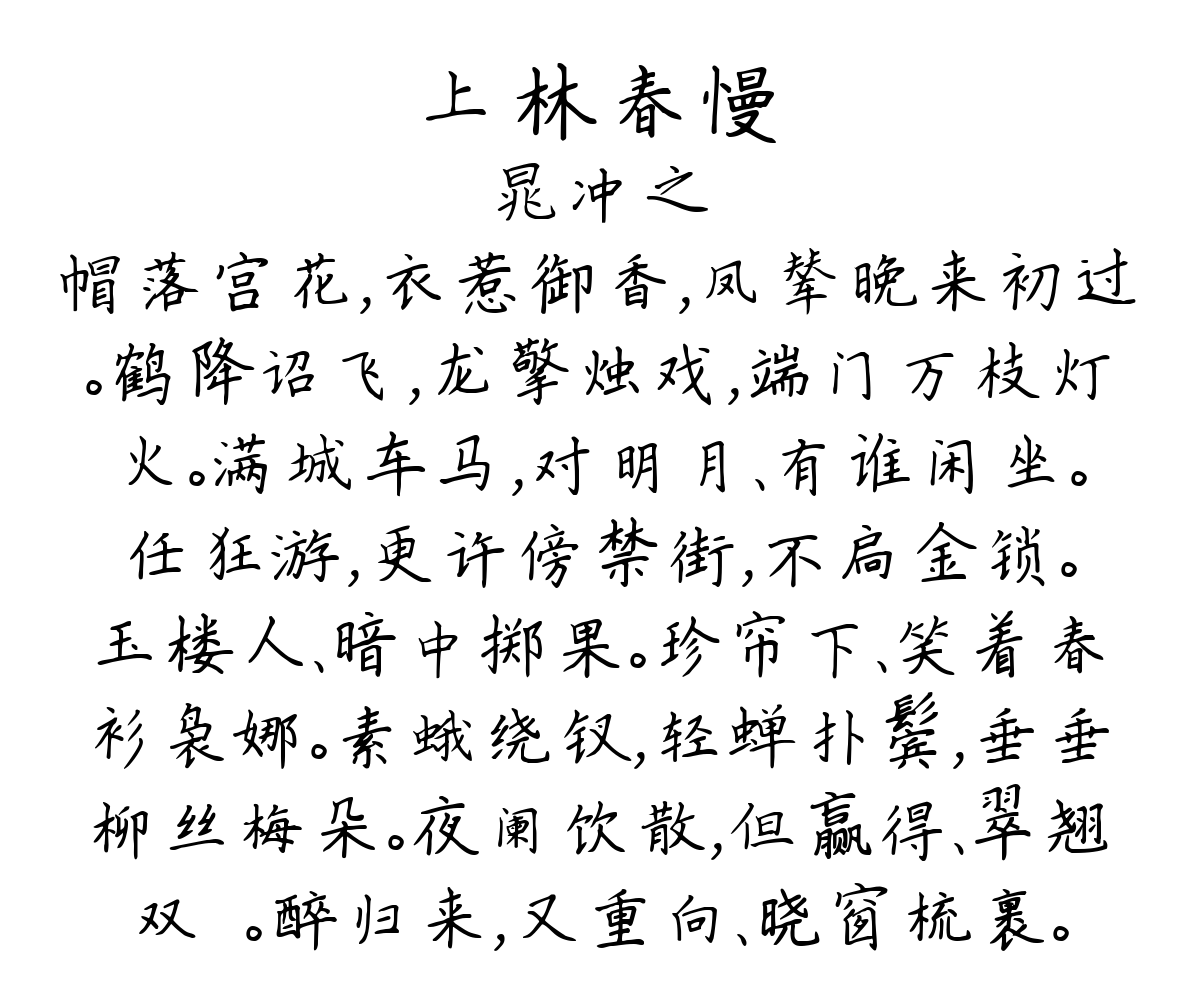 上林春慢
晁冲之
帽落宫花,衣惹御香,凤辇晚来初过
。鹤降诏飞,龙擎烛戏,端门万枝灯
火。满城车马,对明月、有谁闲坐。
任狂游,更许傍禁街,不扃金锁。
玉楼人、暗中掷果。珍帘下、笑着春
衫袅娜。素蛾绕钗,轻蝉扑鬓,垂垂
柳丝梅朵。夜阑饮散,但赢得、翠翘
双 。醉归来,又重向、晓窗梳裹。